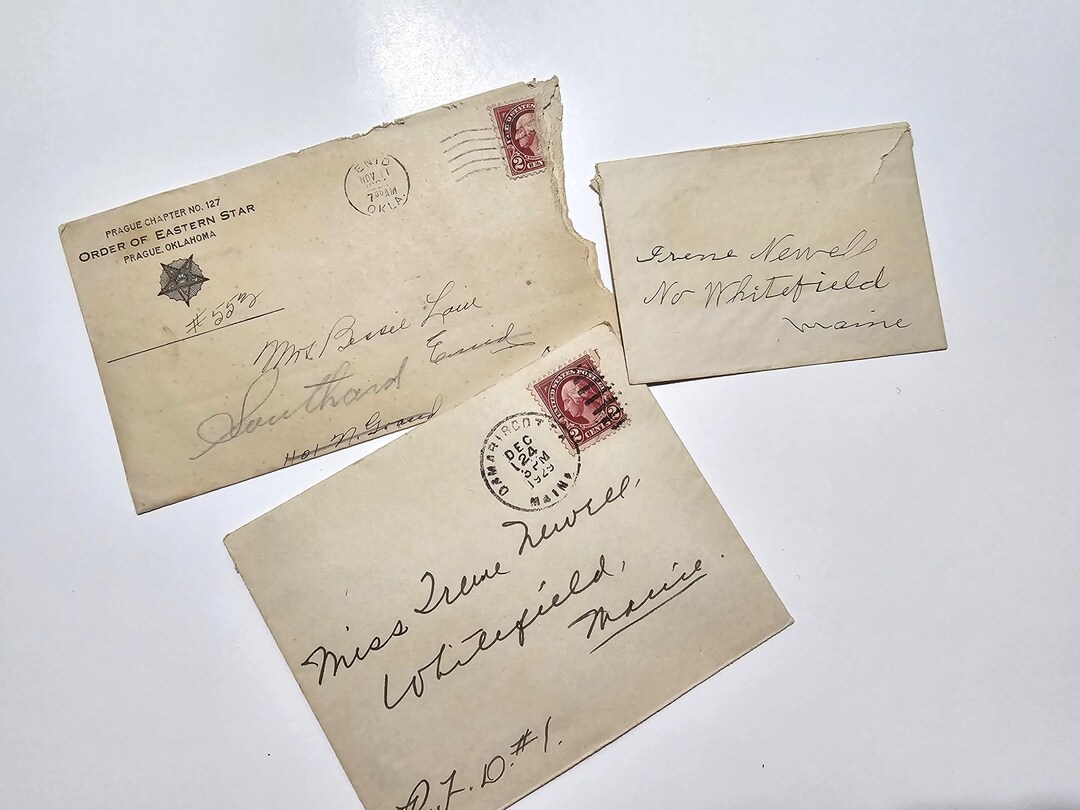 PRAGUE CHAPTER NO. 127
ORDER OF EASTERN STAR
PRAGUE, OKLAHOMA
ENID
NOV 11
7 AM
OKLA.
2
CEN
Mrs. Bessie
Enid
Southard
1101 N. Grand
Irene Newell
No Whitefield
Maine
UNITED STATES POST
2 CENTS 2
DAMARISCOTTA
DEC
24
3 PM
1929
MAINE
Miss Irene Newell,
Whitefield,
Maine.
R.F.D. #1.